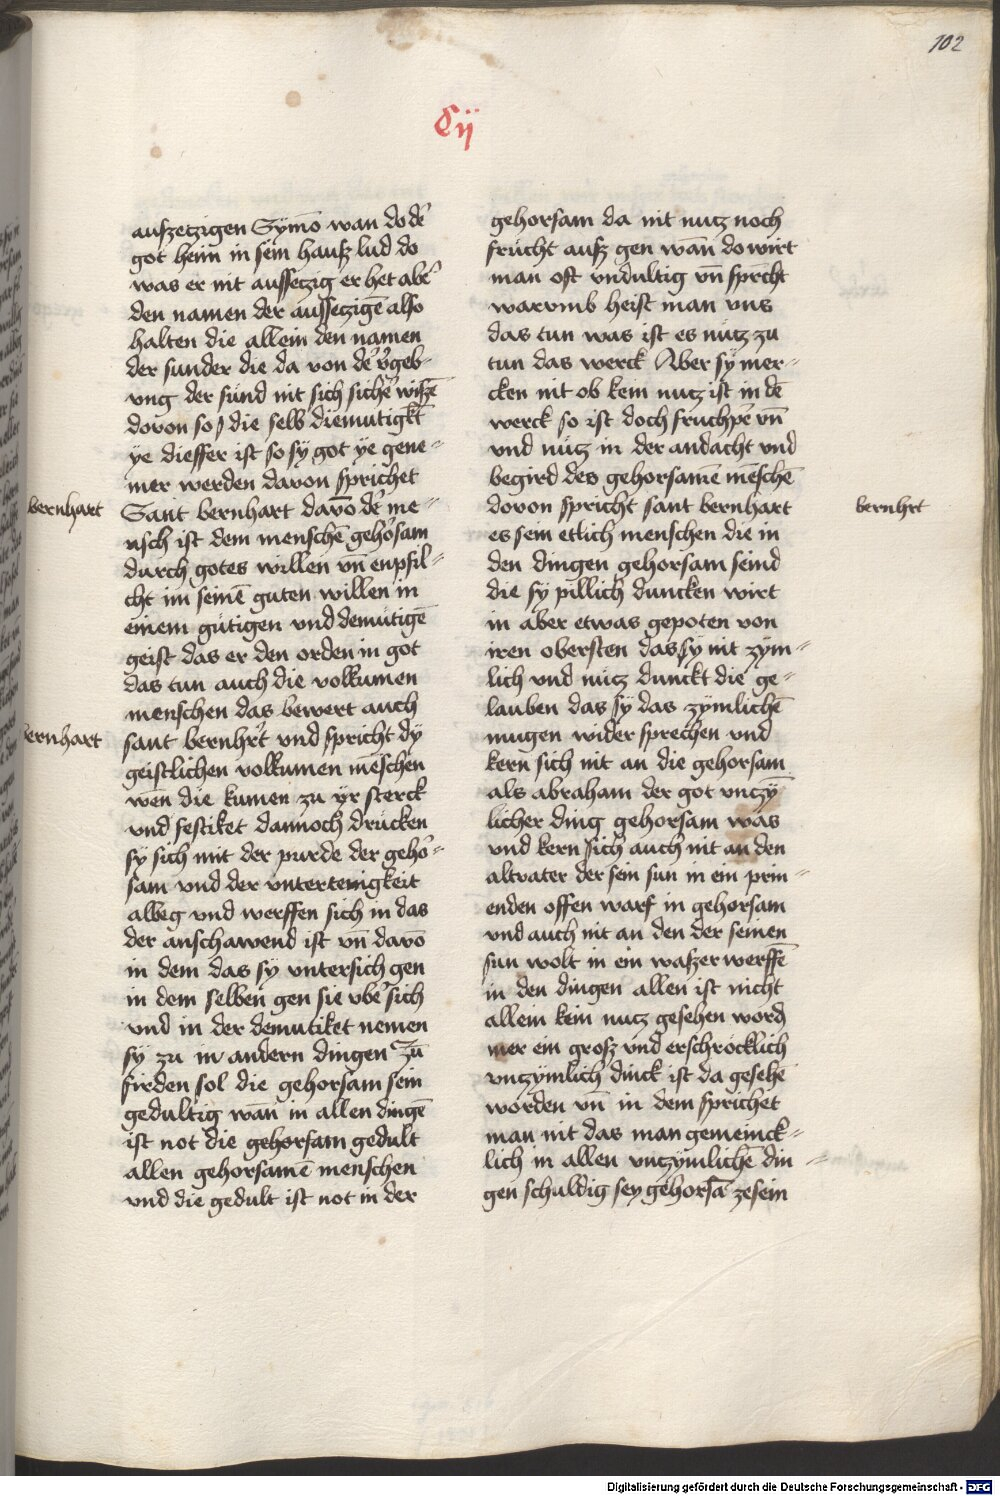 102
Cij
aufzetzigen Symō wan do dē
got heim in sein hauſz lud do
was er nit auſſetzig er het abe᷑
den namen der auſſetzigē alſo
halten die allein den namen
der sunder die da von de᷑ v᷑geb-
ung der sünd nit sich siche᷑ wiſzē
dovon so die selb diemutigkt
ye dieffer ist so sy got ye gene=
mer werden davon sprichet
Sant bernhart davō de᷑ me=
nsch ist dem menschē gehorsam
durch gotes willen vn̄ enpfil=
cht im seinē guten willen in
einem gütigen vnd demütigē
geist das er den orden in got
das tun auch die volkumen
menschen das bewert auch
sant bernhrt vnd spricht dy
geistlichen volkumen mēschen
wen die kumen zu yr sterck
vnd festiket dannoch drucken
sy sich mit der purde der geho=
sam vnd der vntertenigkeit
albeg vnd werffen sich in das
der anschawend ist vn̄ davō
in dem das sy vntersich gen
in dem selben gen sie vbe᷑ sich
vnd in der demutiket nemen
sy zu in andern dingen Zū
firden sol die gehorsam sein
gedultig wan̄ in allen dingē
ist not die gehorsam gedult
allen gehorsamē menschen
vnd die gedult ist not in der
bernhart
bernhart
gehorsam da nit nutz noch
frücht aufz gen wan̄ do wirt
man oft vndultig vn̄ sprcht
warvmb heist man vns
das tun was ist es nütz zu
tun das werck Aber sy mer=
cken nit ob kein nutz ist in dē
werck so ist doch fruchpe᷑ vn̄
vnd nütz in der andacht vnd
begird des gehorsamē mēschē
dovon spricht sant bernhart
es sein etlich menschen die in
den dingen gehorsam seind
die sy pillich duncken wirt
in aber etwas gepoten von
iren obersten das sy nit zym=
lich vnd nütz dunckt die ge=
lauben das sy das zymlichē
mugen wider sprechen vnd
kern sich nit an die gehorsam
als abraham der got vnczy
licher ding gehorsam was
vnd kern sich auch nit an den
altvater der sein sun in ein prin=
enden offen warf in gehorsam
vnd auch nit an den der seinen
sun wolt in ein waſzer werffē
in den dingen allen ist nicht
allein kein nutz gesehen word
mer ein grosz vnd erschröcklich
vnczymlich dinck ist da gesehē
worden vn̄ in dem sprichet
man nit das man gemeinck=
lich in allen vnczymlichē din=
gen schuldig sey gehorsā ze sein
bernhrt
Digitalisierung gefördert durch die Deutsche Forschungsgemeinschaft - DFG